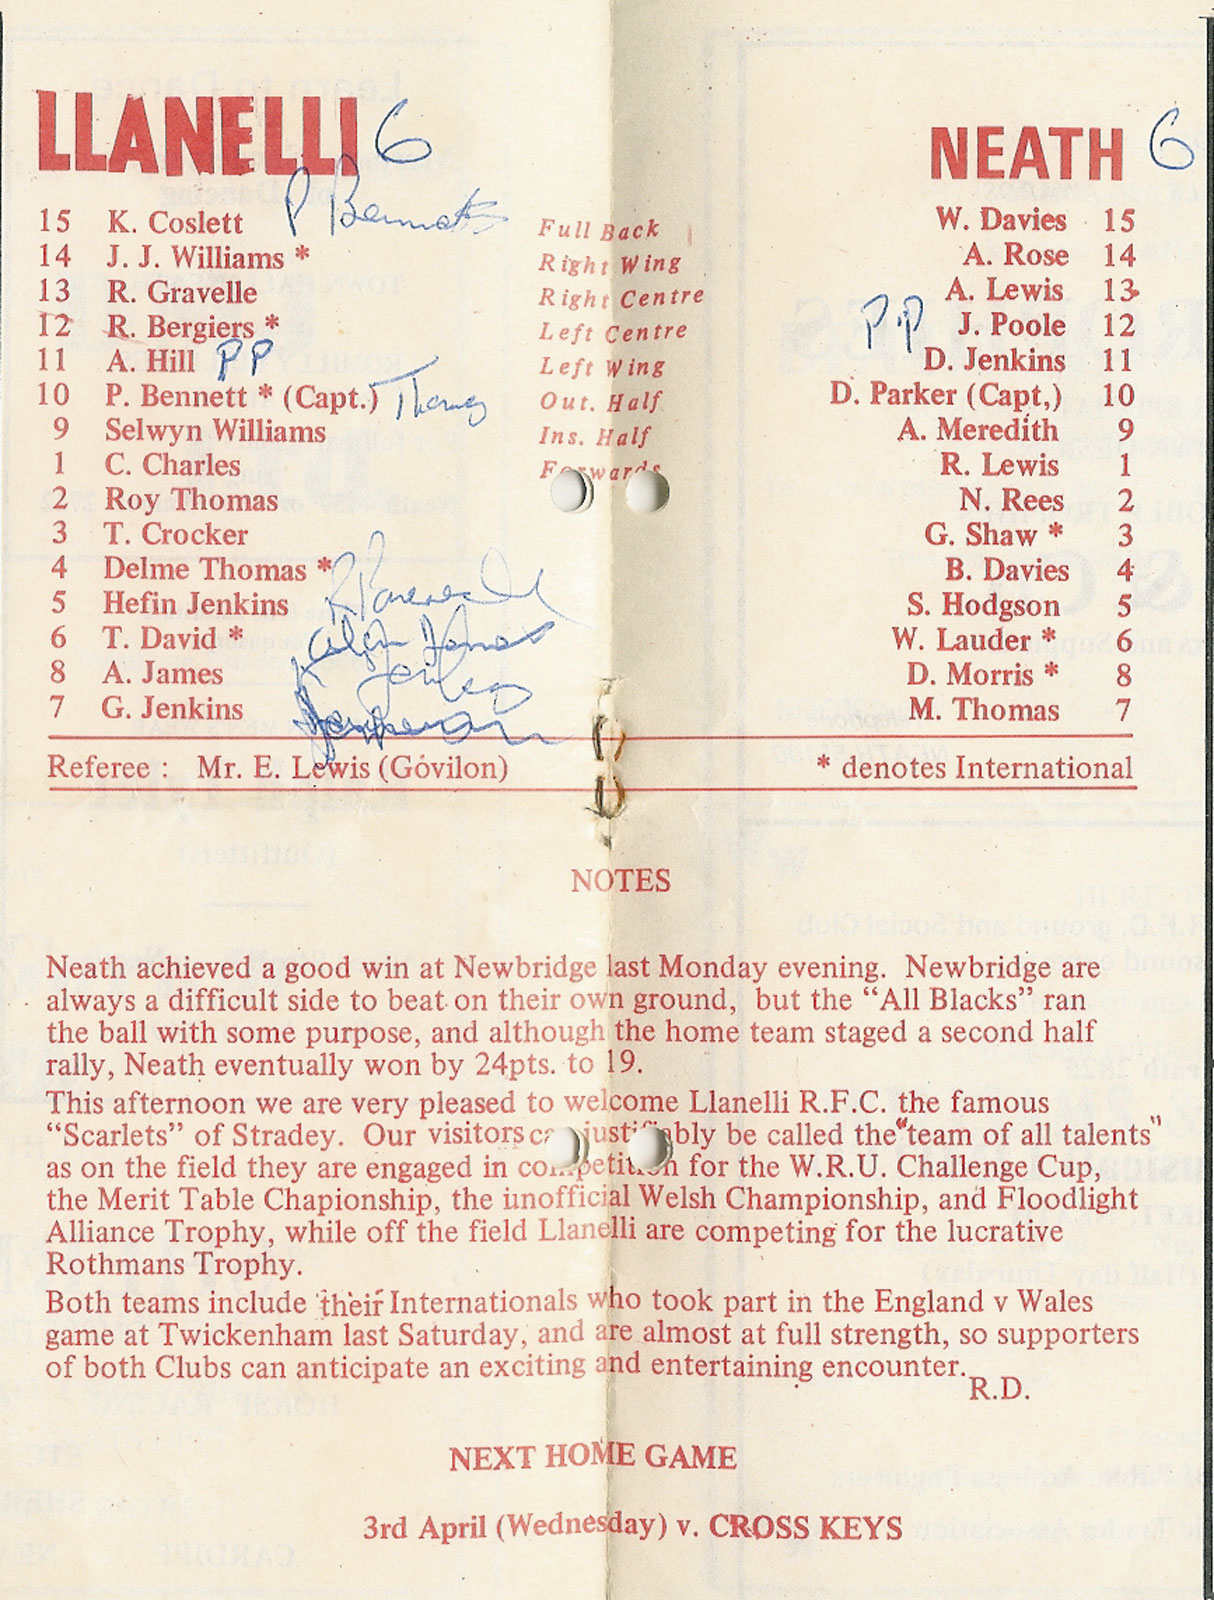 LLANELLI 6
NEATH 6
P Bennett
15 K. Coslett Full Back W. Davies 15
14 J. J. Williams * Right Wing A. Rose 14
13 R. Gravelle Right Centre A. Lewis 13
12 R. Bergiers * Left Centre PP J. Poole 12
11 A. Hill PP Left Wing D. Jenkins 11
10 P. Bennett * (Capt.) Thomas Out. Half D. Parker (Capt,) 10
9 Selwyn Williams Ins. Half A. Meredith 9
1 C. Charles Forwards R. Lewis 1
2 Roy Thomas N. Rees 2
3 T. Crocker G. Shaw * 3
4 Delme Thomas * B. Davies 4
5 Hefin Jenkins S. Hodgson 5
6 T. David * W. Lauder * 6
8 A. James D. Morris * 8
7 G. Jenkins M. Thomas 7
Referee : Mr. E. Lewis (Govilon) * denotes International
NOTES
Neath achieved a good win at Newbridge last Monday evening. Newbridge are
always a difficult side to beat on their own ground, but the "All Blacks" ran
the ball with some purpose, and although the home team staged a second half
rally, Neath eventually won by 24pts. to 19.
This afternoon we are very pleased to welcome Llanelli R.F.C. the famous
"Scarlets" of Stradey. Our visitors can justifiably be called the "team of all talents"
as on the field they are engaged in competition for the W.R.U. Challenge Cup,
the Merit Table Chapionship, the unofficial Welsh Championship, and Floodlight
Alliance Trophy, while off the field Llanelli are competing for the lucrative
Rothmans Trophy.
Both teams include their Internationals who took part in the England v Wales
game at Twickenham last Saturday, and are almost at full strength, so supporters
of both Clubs can anticipate an exciting and entertaining encounter.
R.D.
NEXT HOME GAME
3rd April (Wednesday) v. CROSS KEYS